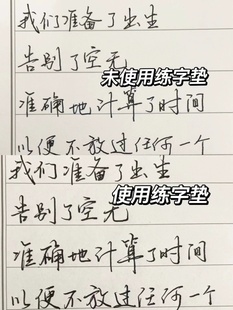 我们准备了出生
告别了空无
未使用练字垫
准确地计算了时间
以便不放过任何一个
我们准备了出生
使用练字垫
告别了空无
准确地计算了时间
以便不放过任何一个